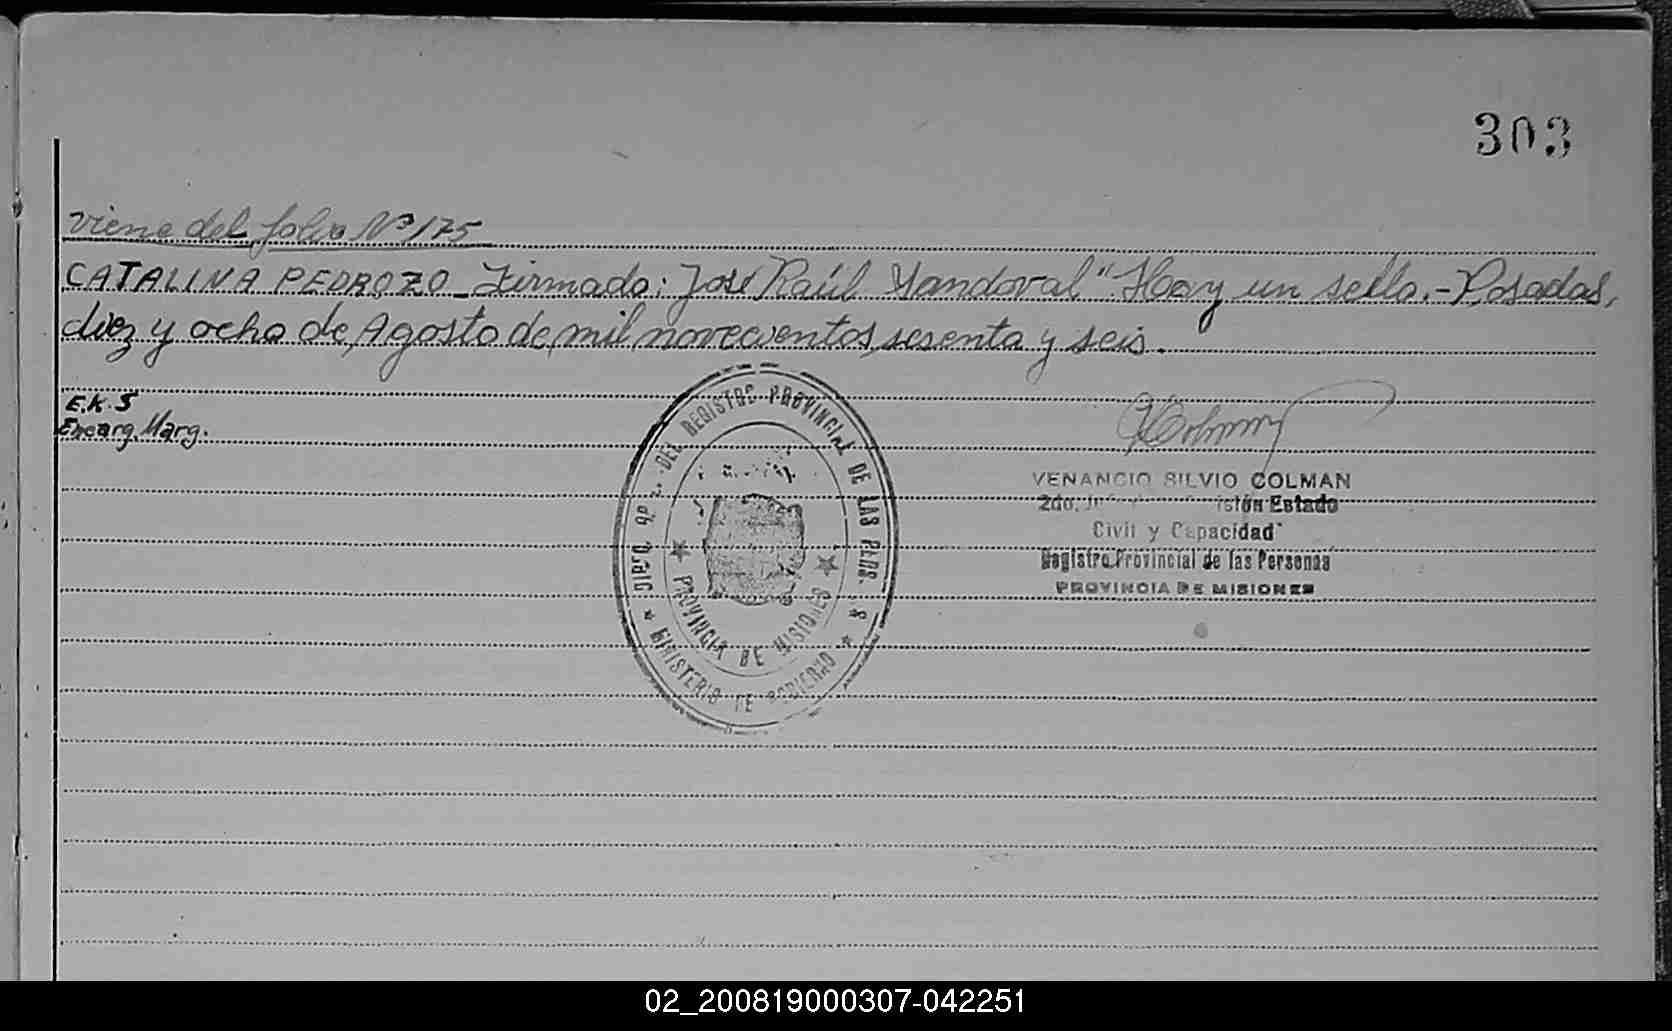 303
Viene del folio Nº 175
CATALINA PEDROZO_Firmado: José Raúl Sandoval". Hay un sello.- Posadas,
diez y ocho de Agosto de mil novecientos sesenta y seis.
E.K.S
Encarg. Marg.
DEL REGISTRO PROVINCIAL DE LAS PERS.
MINISTERIO DE GOBIERNO
PROVINCIA DE MISIONES
VENANCIO SILVIO COLMAN
2do. Estado
Civil y Capacidad
Registro Provincial de las Personas
PROVINCIA DE MISIONES
02_200819000307-042251